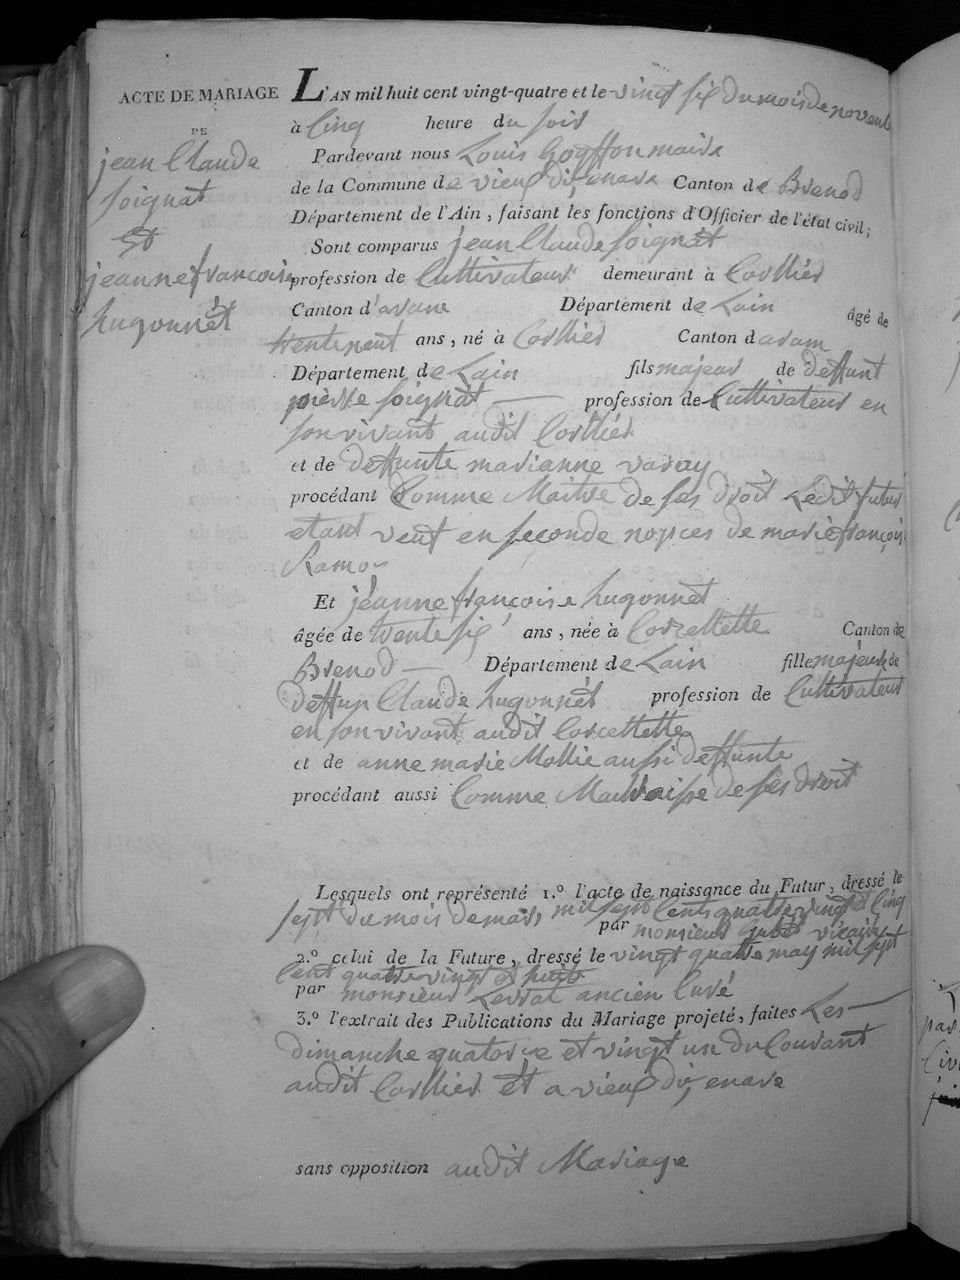 ACTE DE MARIAGE
DE
jean Claude
soignat
Et
jeanne francoise
hugonnet
L'AN mil huit cent vingt-quatre et le vingt six du mois de novemb
à Cinq heure du soir
Pardevant nous Louis goyffon maire
de la Commune de vieux dizenave Canton de Brenod
Département de l'Ain, faisant les fonctions d'Officier de l'état civil;
Sont comparus jean Claude soignat
profession de Cultivateur demeurant à Corlier
Canton d' Département de Lain âgé de
trente neuf ans, né à Corlier Canton d
Département de Lain fils majeur de deffunt
pierre soignat — profession de Cultivateur en
son vivant audit Corlier
et de deffunte marianne varay
procédant Comme Maitre de ses droit Ledit futur
etant veuf en seconde nopces de marie françoise
Ramo
Et jéanne francoise hugonnet
âgée de trente six ans, née à Corcellette Canton de
Brenod — Département de Lain fille majeure de
deffun Claude hugonnet profession de Cultivateur
en son vivant audit Corcellette
et de anne marie Mollie aussi deffunte
procédant aussi Comme Maitraisse de ses droit
Lesquels ont représenté 1.º l'acte de naissance du Futur, dressé le
sept du mois de mars, mil sept Cent quatre vingt Cinq
par monsieur vicaire
2.º celui de la Future, dressé le vingt quatre may mil sept
Cent quatre vingt et huit
par monsieur ancien Curé
3.º l'extrait des Publications du Mariage projeté, faites Les —
dimanche quatorze et vingt un du Courant
audit Corlier et a vieux dizenave
sans opposition audit Mariage